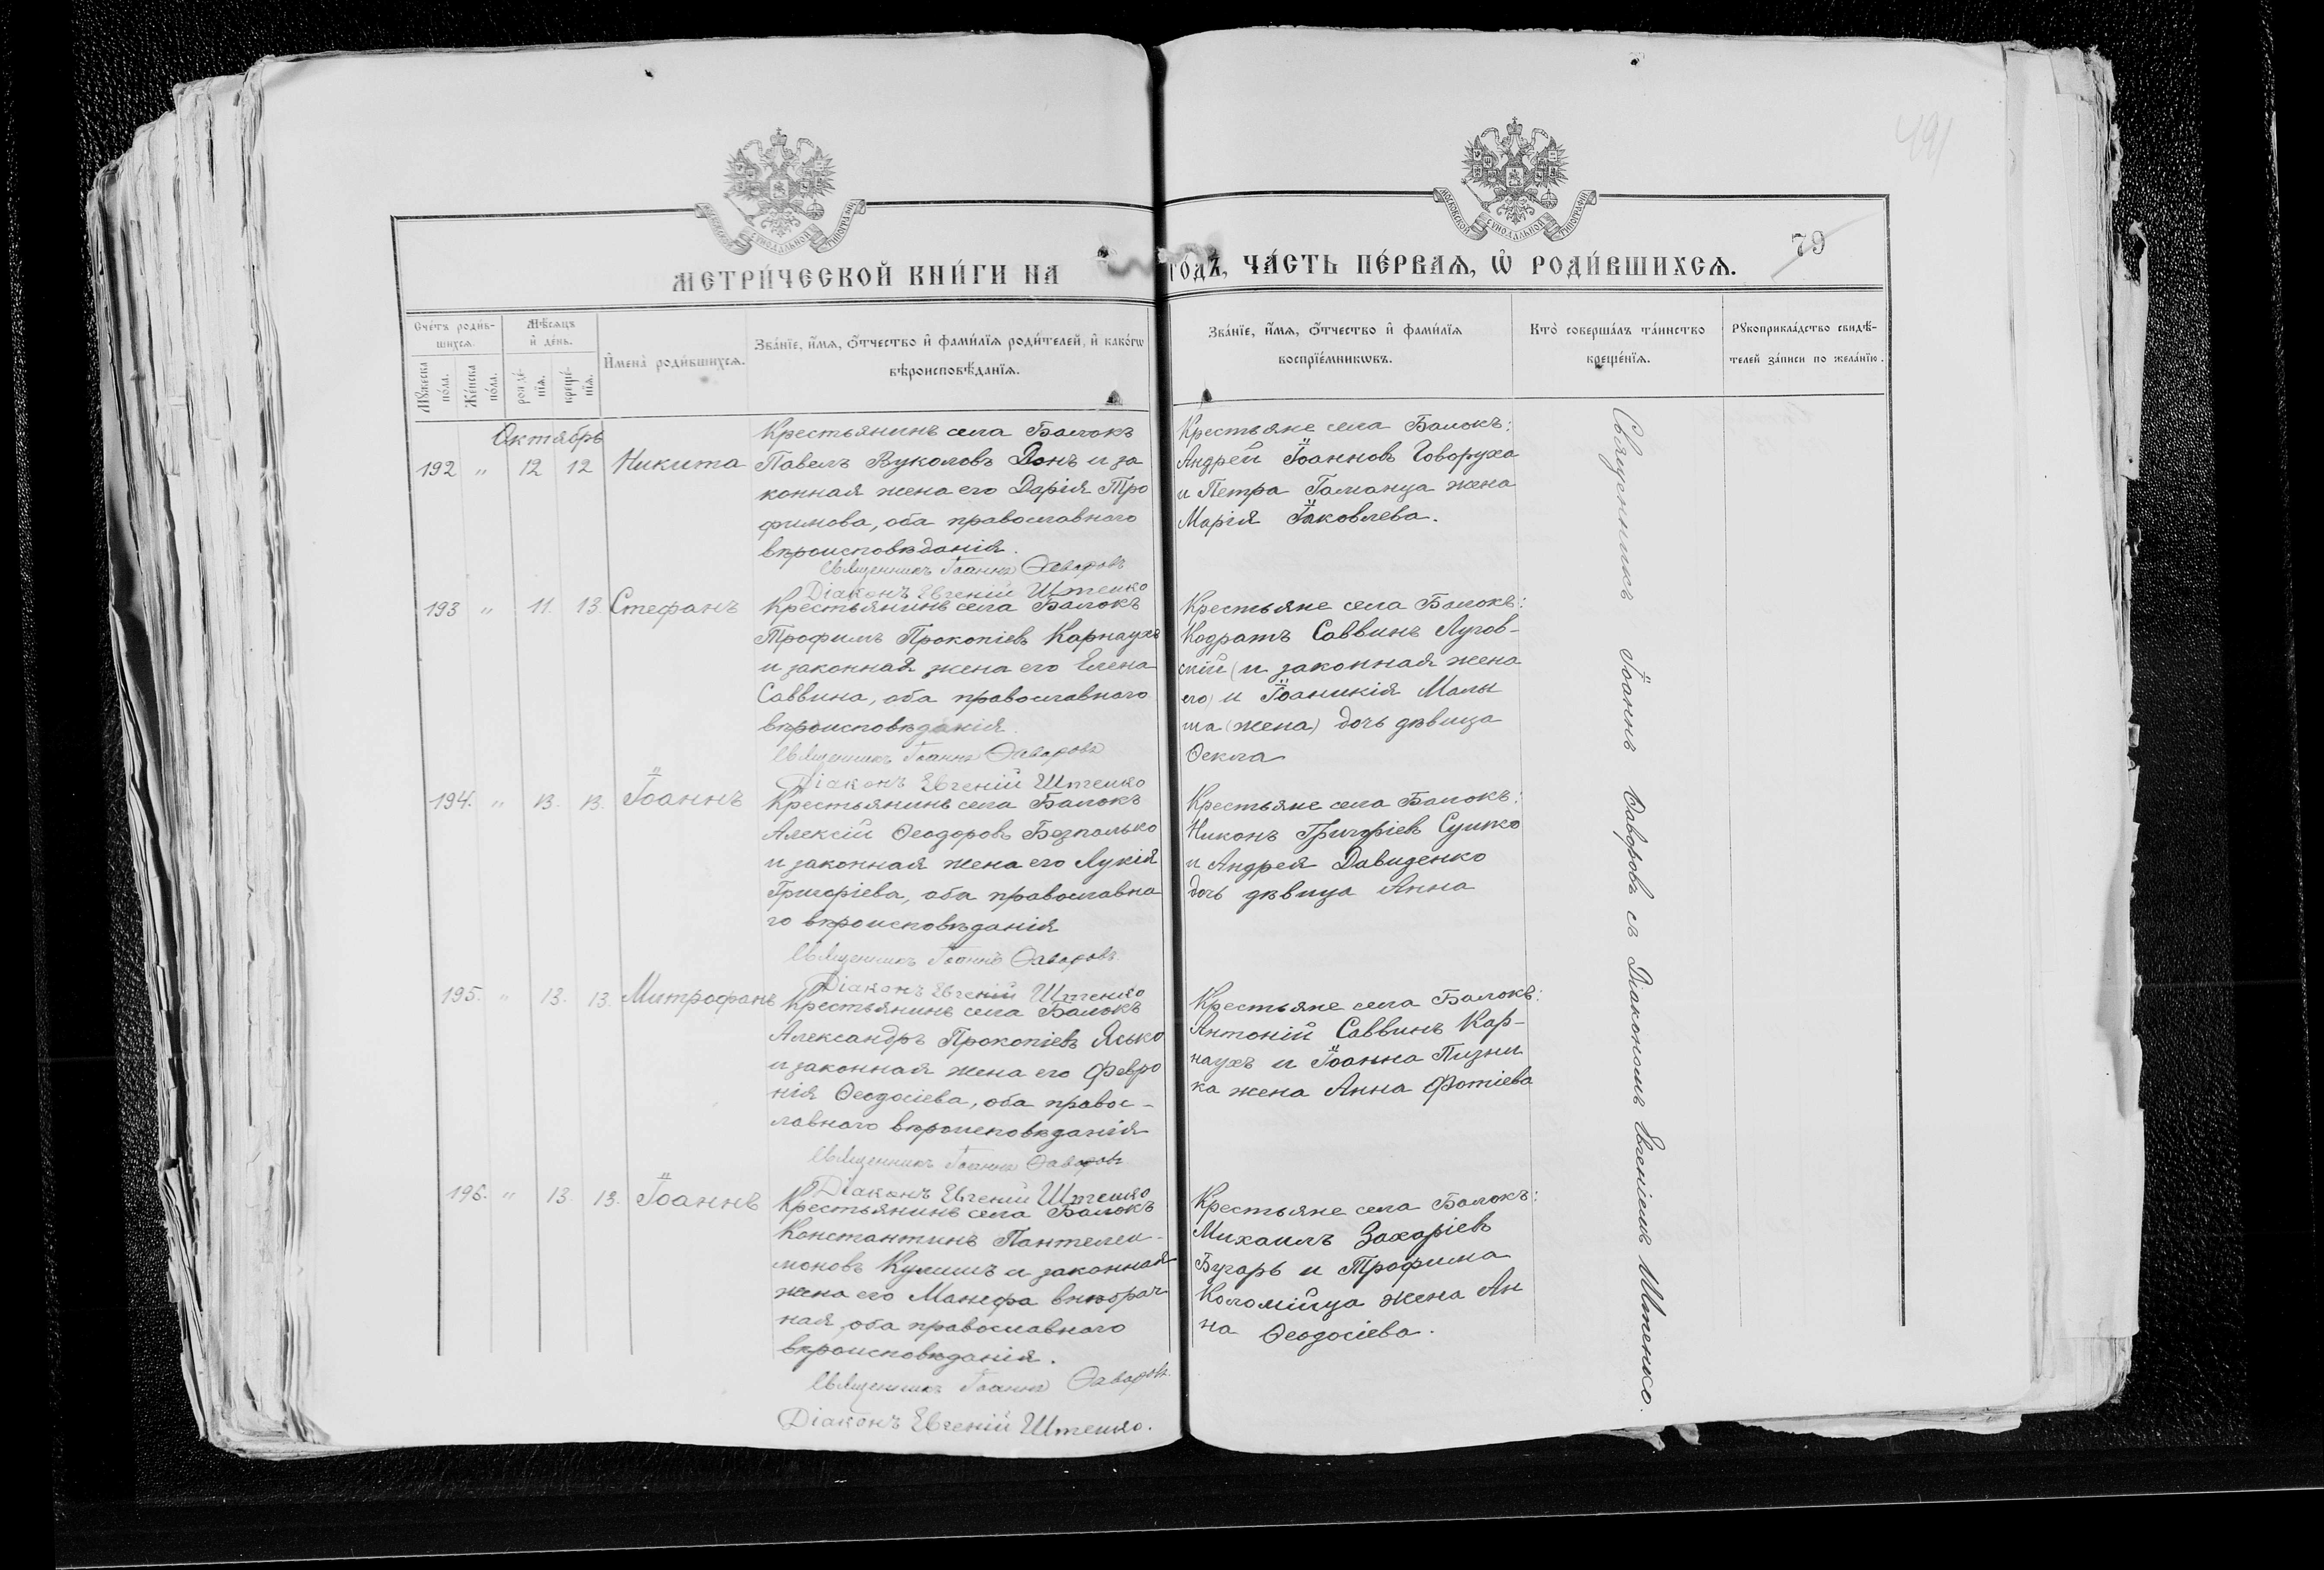 491
МОСКОВСКОЙ СѴНОДАЛЬНОЙ ТИПОГРАФІИ
МОСКОВСКОЙ СѴНОДАЛЬНОЙ ТИПОГРАФІИ
79
МЕТРИ́ЧЕСКОЙ КНИ́ГИ НА
ГО́ДЪ, ЧА́СТЬ ПЕ́РВАѦ, Ѡ҆ РОДИ́ВШИХСѦ.
Сче́тъ роди́в-
шихсѧ.
Мѣ́сѧцъ
и҆ де́нь.
Мꙋ́жеска
по́ла.
Же́нска
по́ла.
рожде́-
нїѧ.
креще́-
нїѧ.
И҆мена̀ роди́вшихсѧ.
Зва́нїе, и҆́мѧ, ѻ҆́тчество и҆ фами́лїѧ роди́телей, и҆ како́гѡ
вѣроисповѣ́данїѧ.
Зва́нїе, и҆́мѧ, ѻ҆́тчество и҆ фами́лїѧ
воспрїе́мникѡвъ.
Кто̀ соверша́лъ та́инство
креще́нїѧ.
Рꙋкоприкла́дство свидѣ́-
телей за́писи по жела́нїю.
Октябрь
192 " 12 12 Никита
Крестьянинъ села Балокъ
Павелъ Вуколовъ Донъ и за
конная жена его Дарія Тро
фимова, оба православнаго
вѣроисповѣданія.
Священникъ Іоаннъ Ѳаворовъ
Діаконъ Евгеній Штепко
Крестьяне села Балокъ:
Андрей Іоанновъ Говоруха
и Петра Гаманца жена
Марія Іаковлева.
193 " 11. 13 Стефанъ
Крестьянинъ села Балокъ
Трофимъ Прокопіевъ Карнаухъ
и законная жена его Елена
Саввина, оба православнаго
вѣроисповѣданія.
Священникъ Іоаннъ Ѳаворовъ
Діаконъ Евгеній Штепко
Крестьяне села Балокъ:
Кодратъ Саввинъ Лугов-
скій (и законная жена
его) и Іоаникія Малы
ша (жена) дочь дѣвица
Ѳекла
194. " 13. 13. Іоаннъ
Крестьянинъ села Балокъ
Алексій Ѳеодоровъ Безпалько
и законная жена его Лукія
Григоріева, оба православна
го вѣроисповѣданія
Священникъ Іоаннъ Ѳаворовъ.
Діаконъ Евгеній Штепко
Крестьяне села Балокъ:
Никонъ Григоріевъ Сушко
и Андрея Давиденко
дочь дѣвица Анна
195. " 13. 13. Митрофанъ
Крестьянинъ села Балокъ
Александръ Прокопіевъ Ясько
и законная жена его Февро
нія Ѳеодосіева, оба правос-
лавнаго вѣроисповѣданія
Священникъ Іоаннъ Ѳаворовъ
Діаконъ Евгеній Штепко
Крестьяне села Балокъ:
Антоній Саввинъ Кар-
наухъ и Іоанна Пизни
ка жена Анна Фотіева
196. " 13. 13. Іоаннъ
Крестьянинъ села Балокъ
Константинъ Пантелеи-
моновъ Кулишъ и законная
жена его Манефа внѣбрач
ная, оба православнаго
вѣроисповѣданія.
Священникъ Іоаннъ Ѳаворовъ.
Діаконъ Евгеній Штепко.
Крестьяне села Балокъ:
Михаилъ Захаріевъ
Бугарь и Трофима
Коломійца жена Ан
на Ѳеодосіева.
Священникъ Іоаннъ Ѳаворовъ съ Діакономъ Евгеніемъ Штепко.